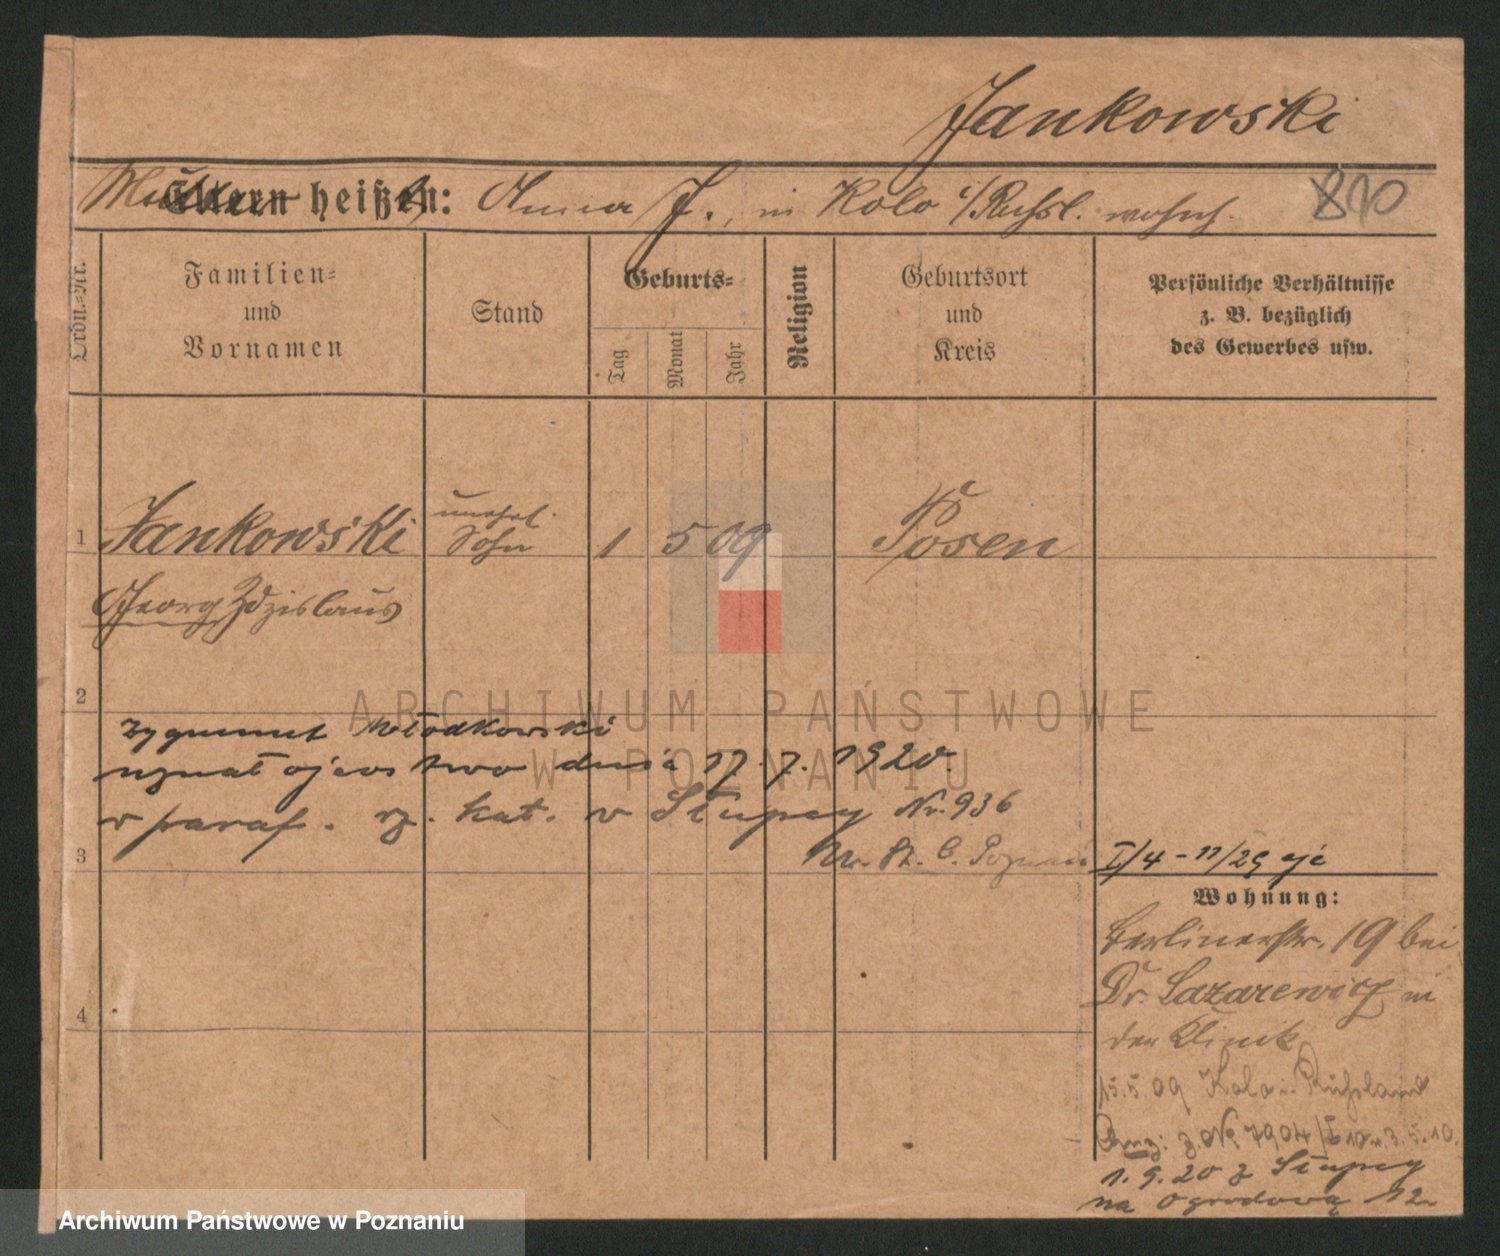 Jankowski
Mutter heißt: Anna J., in Kolo i/Russl. wohnh.
810
Ordn.-Nr.
Familien-
und
Vornamen
Stand
Geburts-
Tag
Monat
Jahr
Religion
Geburtsort
und
Kreis
Persönliche Verhältnisse
z. B. bezüglich
des Gewerbes usw.
1
Jankowski
unehel.
Sohn
1 5 09
Posen
Georg Zdzislaus
2
Zygmunt Młodkowski
uznał ojcostwo dnia 17.7.1920.
w paraf. rz. kat. w Słupcy Nr. 936
Poznań
3
I/4 - 11/29
Wohnung:
Berlinerstr. 19 bei
Dr. Lazarewicz in
der Klinik
15.5.09 Kolo i. Russland
7904
1.9.20 z Słupcy
na Ogrodową 12
4
ARCHIWUM PAŃSTWOWE
W POZNANIU
Archiwum Państwowe w Poznaniu